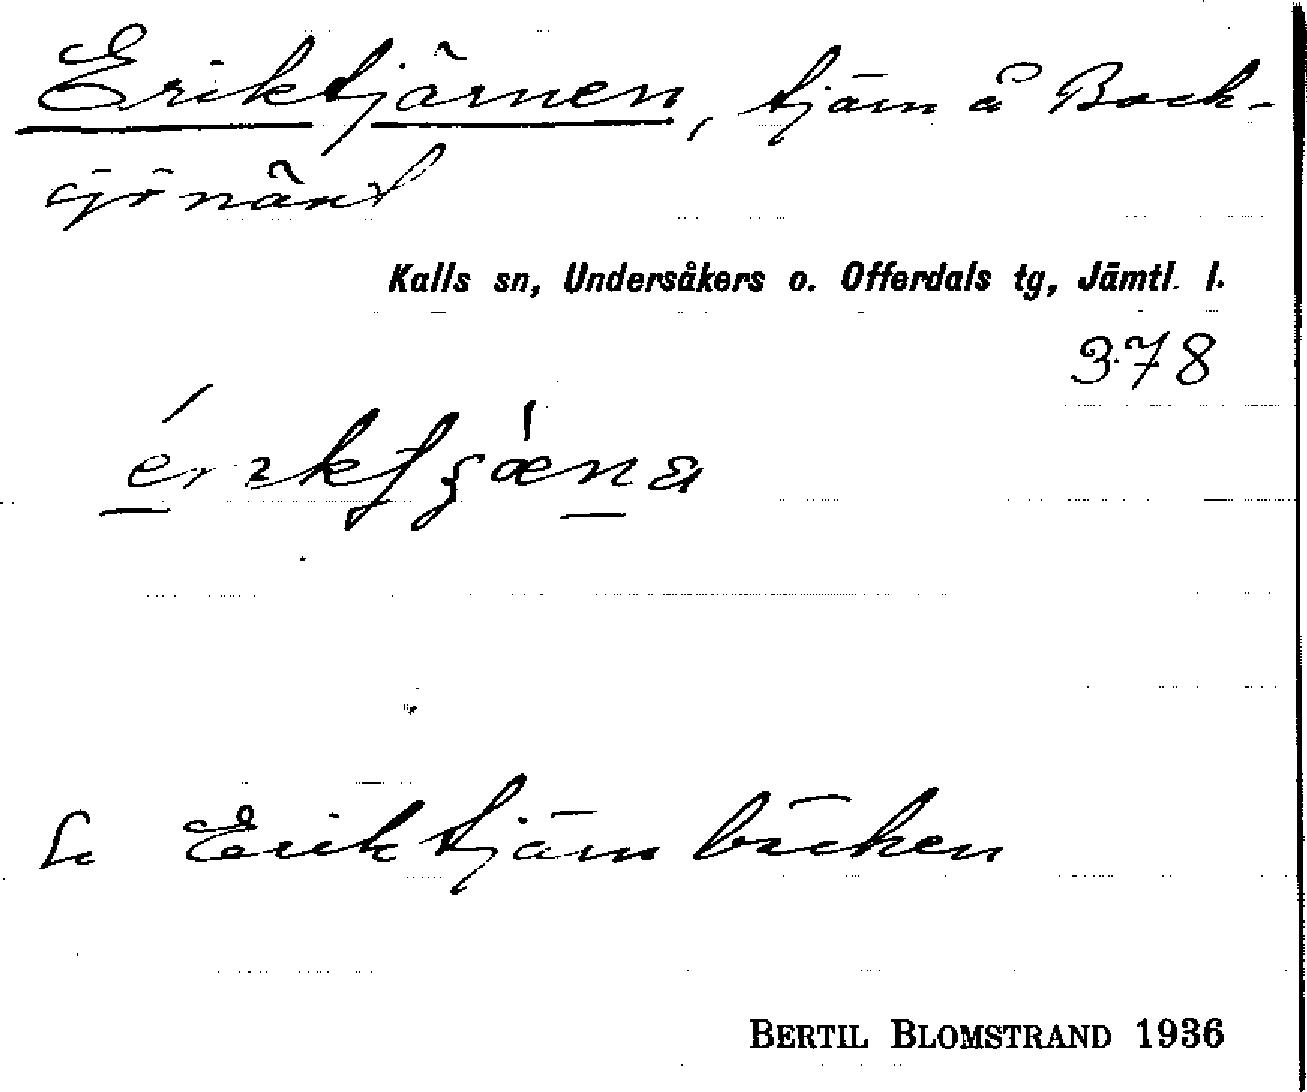 Eriktjärnen, tjärn å Back-
sjönäset
Kalls sn, Undersåkers o. Offerdals tg, Jämtl. l.
378
Se Eriktjärnbäcken
BERTIL BLOMSTRAND 1936